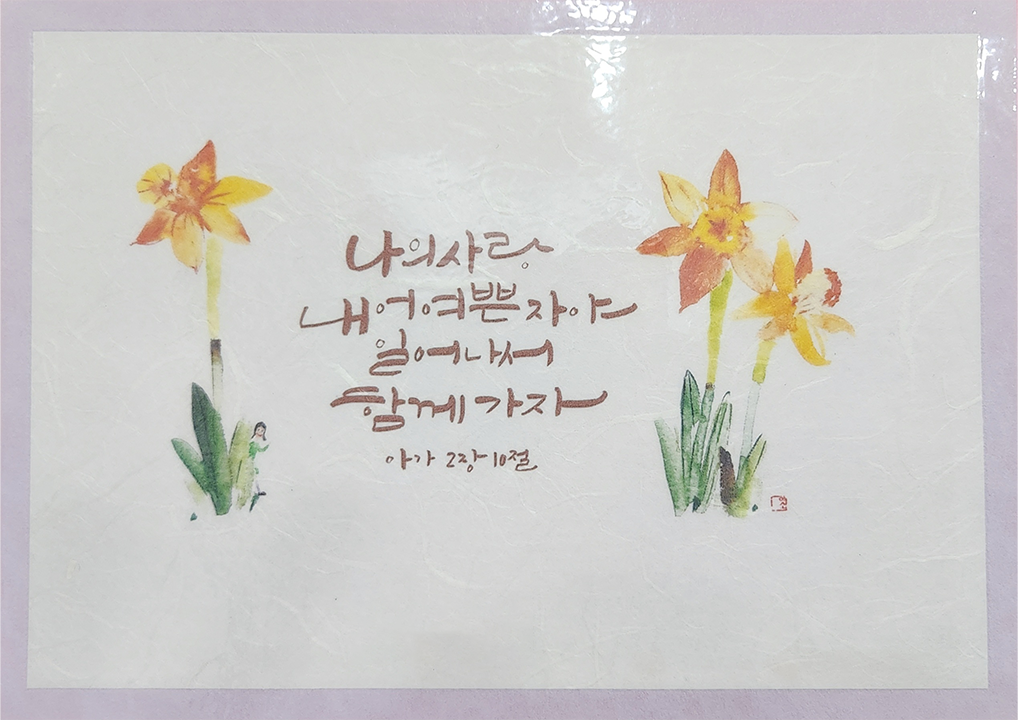 나의 사랑
내 어여쁜 자야
일어나서
함께 가자
아가 2장 10절